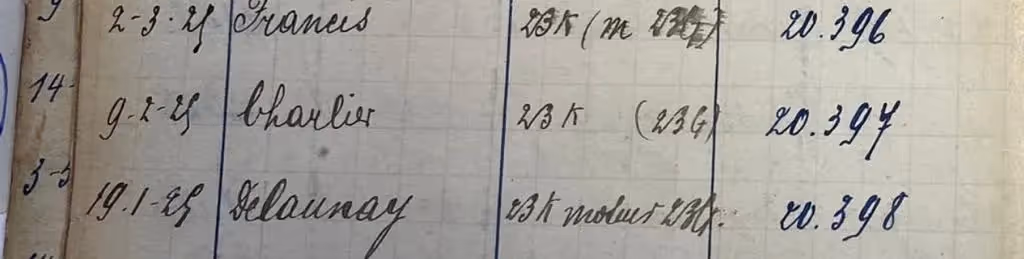 9 2-3-25 Francis 23K (m 23G) 20.396
14- 9-2-25 Charlier 23K (23G) 20.397
3-3 19.1-25 Delaunay 23K moteur 23G. 20.398